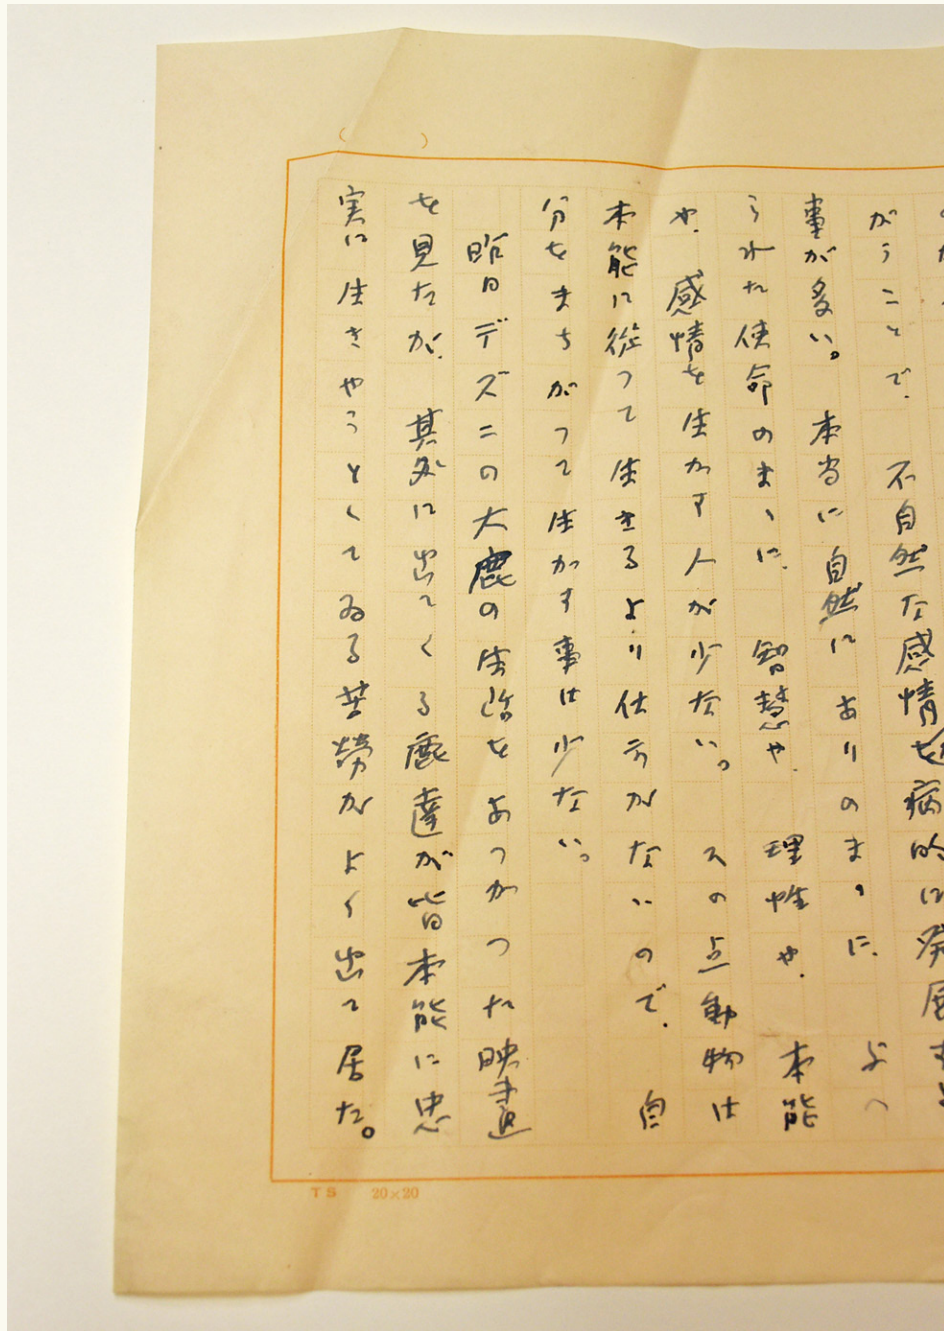 がうことで、不自然な感情を病的に発展する
事が多い。本当に自然にありのまゝに、よへ
られた使命のまゝに、智慧や、理性や、本能
や、感情を生かす人が少ない。スの点動物は
本能に従つて生きるより仕方がないので、自
分をまちがつて生かす事は少ない。
昨日デズニの大鹿の生活をあつかつた映画
を見たが、其処に出てくる鹿達が皆本能に忠
実に生きやうとしてゐる苦労がよく出て居た。
TS 20×20